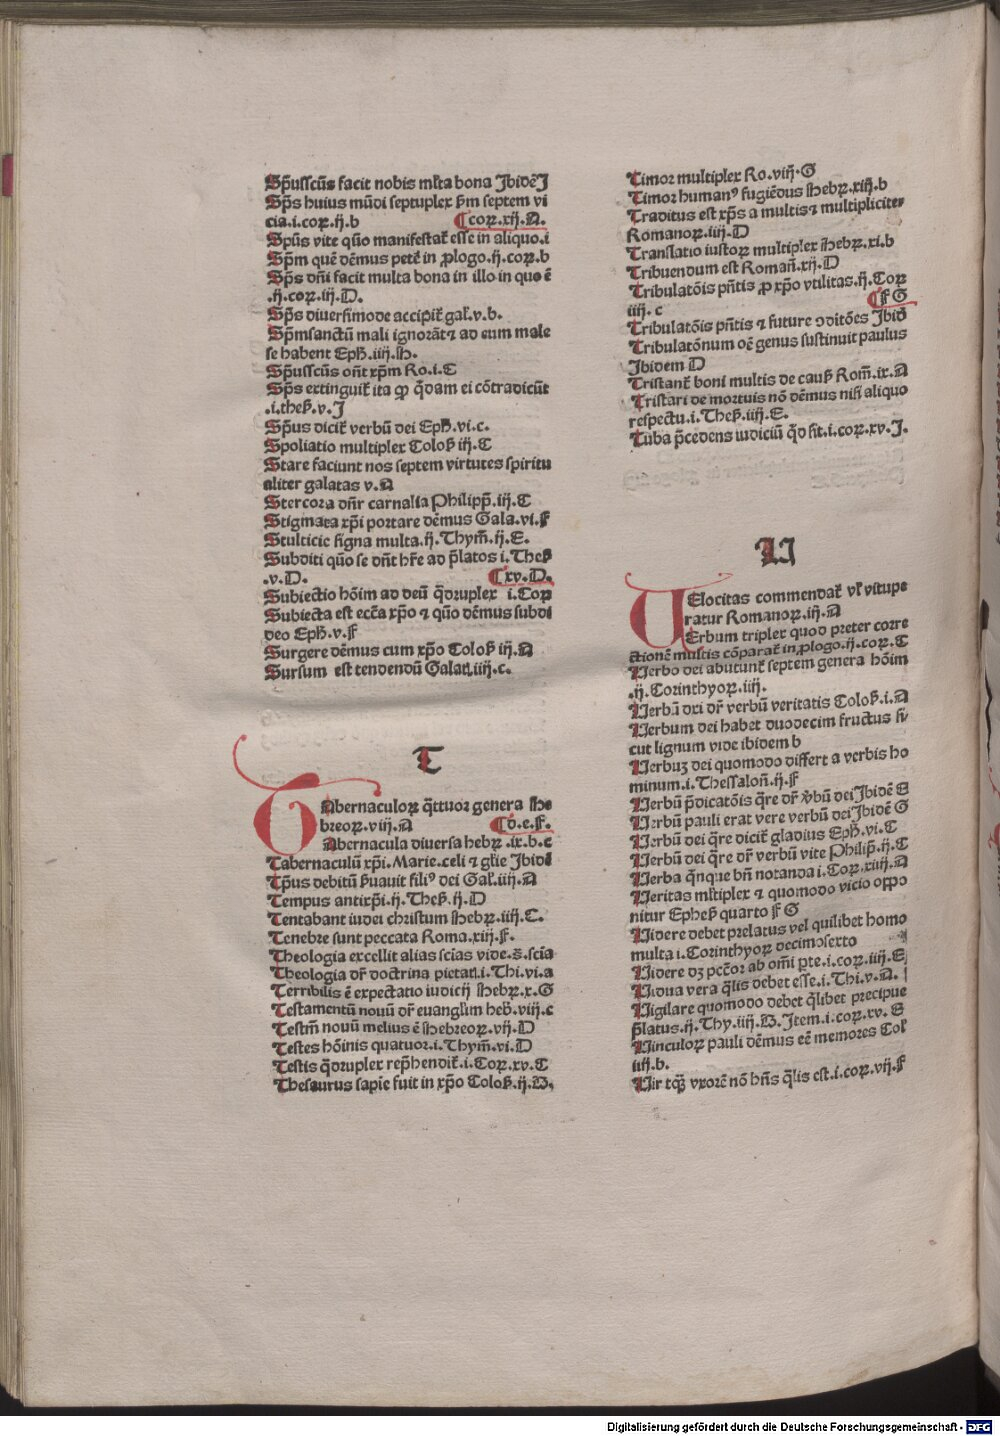 Sp̄usscūs facit nobis ml̕ta bona Ibidē I
Sp̄s huius mūdi septuplex p̄m septem vi
cia.i.coꝝ.ij.b ⸿coꝝ.xij.A.
Sp̄us vite quō manifestat̕ esse in aliquo.i
Sp̄m quē dēmus petē in ꝓlogo.ij.coꝝ.b
Sp̄s dn̄i facit multa bona in illo in quo ē
.ij.coꝝ.iij.D.
Sp̄s diuersimode accipit̕ gal̕.v.b.
Sp̄msanctū mali ignorāt ⁊ ad eum male
se habent Eph̕.iiij.H.
Sp̄usscūs on̄t xp̄m Ro.i.C
Sp̄s extinguit̕ ita ꝙ q̄dam ei cōtradicūt
.i.thes̕.v.I
Sp̄us dicit̕ verbū dei Eph̕.vi.c.
Spoliatio multiplex Colos̕ iij.C
Stare faciunt nos septem virtutes spiritu
aliter galatas v.A
Stercora dn̄r carnalia Philipp̄.iij.C
Stigmata xp̄i portare dēmus Gala.vi.F
Stulticie signa multa.ij.Thym̄.ij.E.
Subditi quō se dn̄t hr̄e ad p̄latos i.Thes̕
.v.D. ⸿xv.D.
Subiectio hōim ad deū q̄druplex i.Coꝝ
Subiecta est ecc̄a xp̄o ⁊ quō dēmus subdi
deo Eph̕.v.F
Surgere dēmus cum xp̄o Colos̕ iij.A
Sursum est tendendū Galat̕.iiij.c.
T
TAbernaculoꝝ q̄ttuor genera He
breoꝝ.viij.A ⸿d.e.F.
Abernacula diuersa hebꝝ.ix.b.c
Tabernaculū xp̄i.Marie.celi ⁊ gl̕ie Ibidē
Tp̄us debitū p̄uauit fili⁹ dei Gal̕.iiij.A
Tempus antixp̄i.ij.Thes̕.ij.D
Tentabant iudei christum Hebꝝ.iiij.C.
Tenebre sunt peccata Roma.xiij.F.
Theologia excellit alias scias vide.s̄.scīa
Theologia dr̄ doctrina pietat̕.i.Thi.vi.a
Terribilis ē expectatio iudicij Hebꝝ.x.G
Testamentū nouū dr̄ euangl̕ium heb̄.viij.c
Testm̄ nouū melius ē Hebreoꝝ.vij.D
Testes hōinis quatuor.i.Thym̄.vi.D
Testis q̄druplex rep̄hendit̕.i.Coꝝ.xv.C
Thesaurus sapīe fuit in xp̄o Colos̕.ij.B.
Timor multiplex Ro.viij.G
Timor human⁹ fugiēdus Hebꝝ.xiij.b
Traditus est xp̄s a multis ⁊ multipliciter
Romanoꝝ.iiij.D
Translatio iustoꝝ multiplex Hebꝝ.xi.b
Tribuendum est Roman̄.xij.D
Tribulatōis pn̄tis ꝓ xp̄o vtilitas.ij.Coꝝ
iiij.c ⸿F G
Tribulatōis pn̄tis ⁊ future ↄditōes Ibid̄
Tribulatōnum oē genus sustinuit paulus
Ibidem D
Tristant̕ boni multis de caus̕ Rom̄.ix.A
Tristari de mortuis nō dēmus nisi aliquo
respectu.i.Thes̕.iiij.E.
Tuba p̄cedens iudiciū q̄d sit.i.coꝝ.xv.I.
U
VElocitas commendat̕ vl̕ vitupe
ratur Romanoꝝ.iij.A
Erbum triplex quod preter corre
ctionē multis cōparat̕ in ꝓlogo.ij.coꝝ.C
Verbo dei abutunt̕ septem genera hōim
.ij.Corinthyoꝝ.iiij.
Verbū dei dr̄ verbū veritatis Colos̕.i.A
Verbum dei habet duodecim fructus si/
cut lignum vide ibidem b
Verbuʒ dei quomodo differt a verbis ho
minum.i.Thessalon̄.ij.F
Verbū p̄dicatōis q̄re dr̄ v̄bū dei Ibidē G
Verbū pauli erat vere verbū dei Ibidē G
Verbū dei q̄re dicit̕ gladius Eph̕.vi.C
Verbū dei q̄re dr̄ verbū vite Philip̄.ij.C
Verba q̄nque bn̄ notanda i.Coꝝ.xiiij.A
Veritas ml̕tiplex ⁊ quomodo vicio oppo
nitur Ephes̕ quarto F G
Videre debet prelatus vel quilibet homo
multa i.Corinthyoꝝ decimosexto
Videre dʒ pctōr ab om̄i p̲te.i.coꝝ.iiij.E
Vidua vera q̄lis debet esse.i.Thi.v.A.
Vigilare quomodo debet q̄libet precipue
p̄latus.ij.Thy.iiij.B.Item.i.coꝝ.xv.G
Vinculoꝝ pauli dēmus eē memores Col
iiij.b.
Vir tqʒ vxorē nō hn̄s q̄lis est.i.coꝝ.vij.F
Digitalisierung gefördert durch die Deutsche Forschungsgemeinschaft - DFG